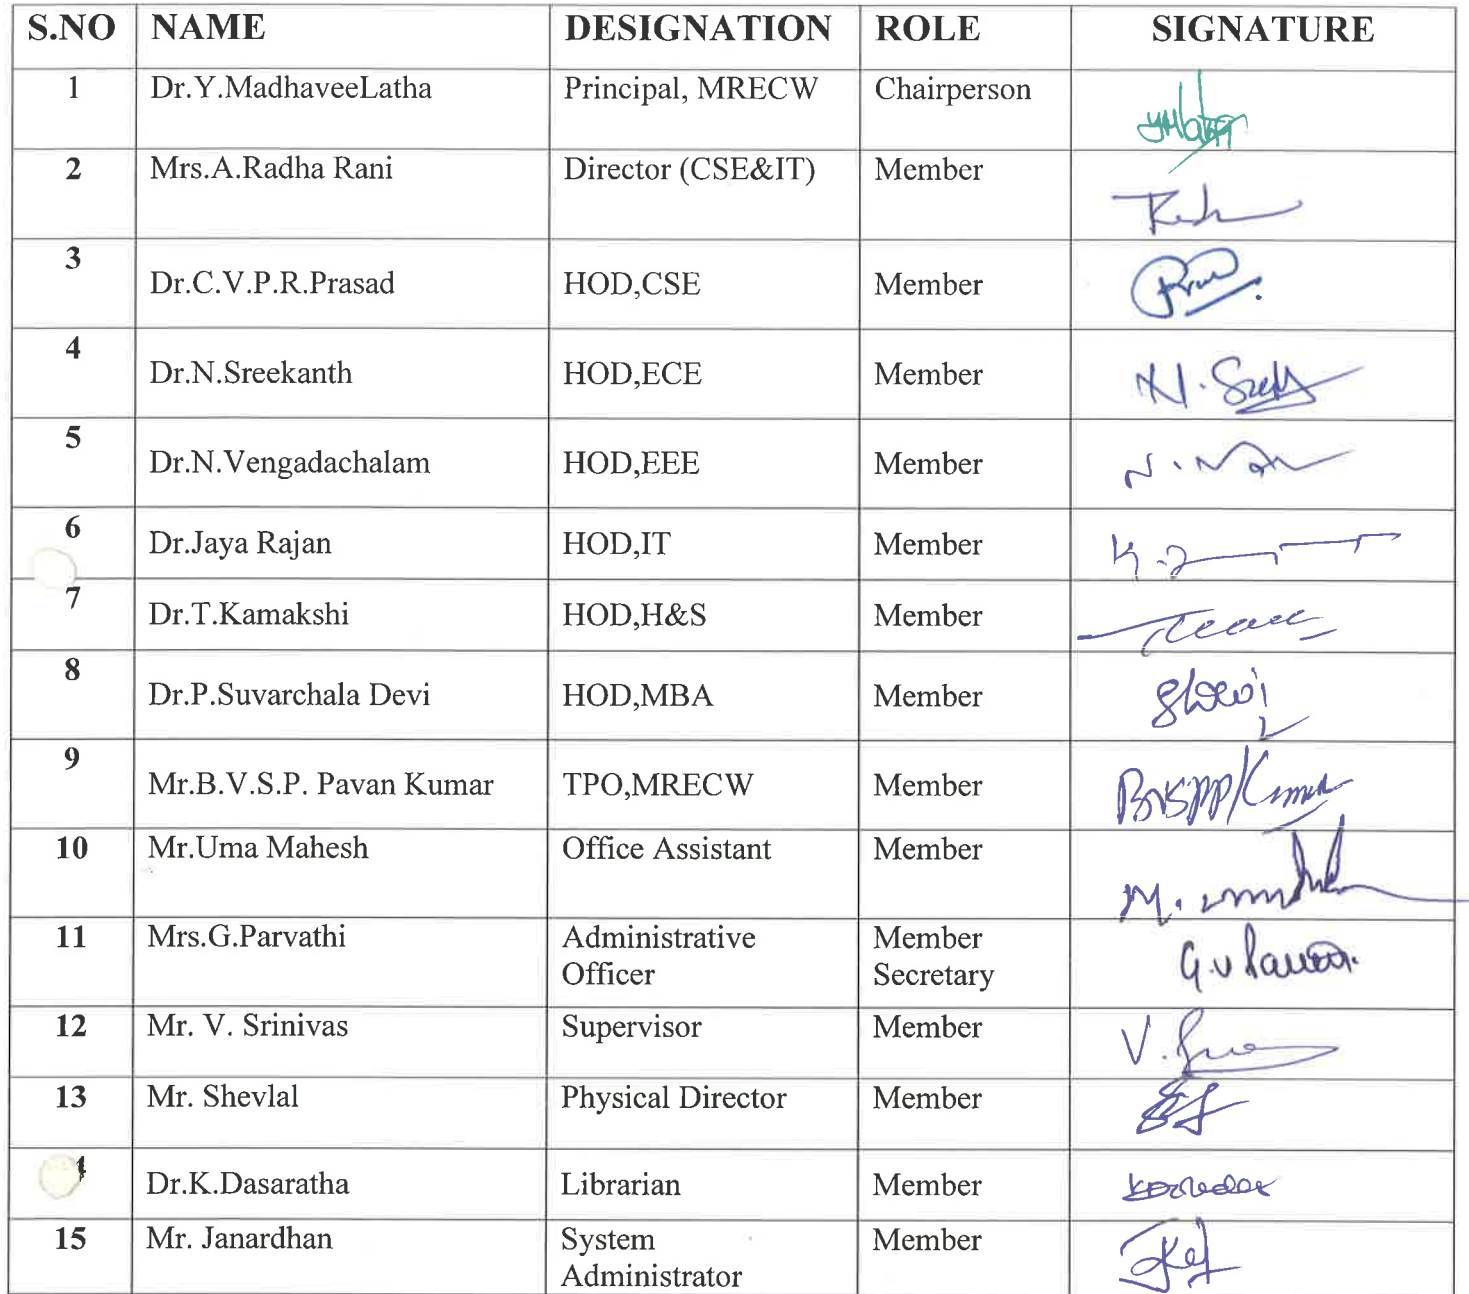 S.NO NAME DESIGNATION ROLE SIGNATURE
1 Dr.Y.MadhaveeLatha Principal, MRECW Chairperson
2 Mrs.A.Radha Rani Director (CSE&IT) Member
3 Dr.C.V.P.R.Prasad HOD,CSE Member
4 Dr.N.Sreekanth HOD,ECE Member
5 Dr.N.Vengadachalam HOD,EEE Member
6 Dr.Jaya Rajan HOD,IT Member
7 Dr.T.Kamakshi HOD,H&S Member
8 Dr.P.Suvarchala Devi HOD,MBA Member
9 Mr.B.V.S.P. Pavan Kumar TPO,MRECW Member
10 Mr.Uma Mahesh Office Assistant Member
11 Mrs.G.Parvathi Administrative Member
Officer Secretary
12 Mr. V. Srinivas Supervisor Member
13 Mr. Shevlal Physical Director Member
Dr.K.Dasaratha Librarian Member
15 Mr. Janardhan System Member
Administrator